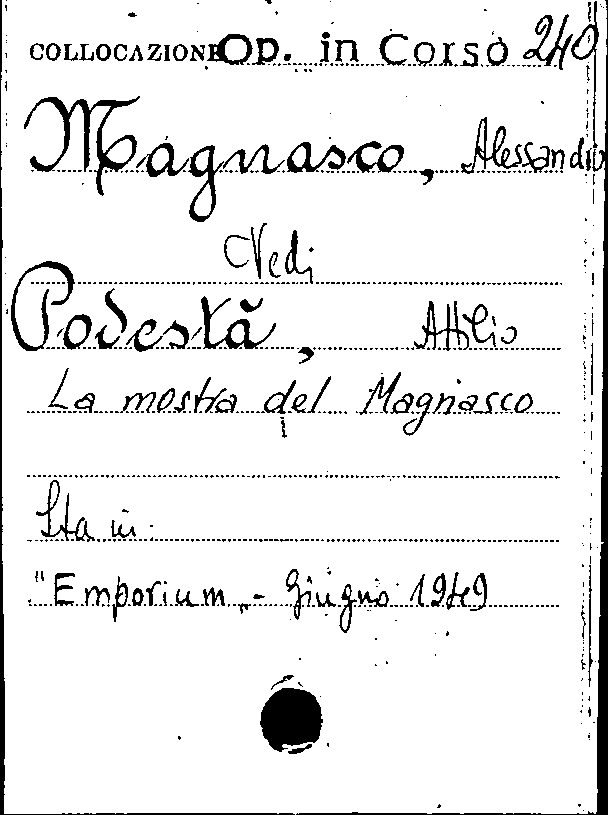 COLLOCAZIONE Op. in Corso 240
Magnasco, Alessandro
Vedi
Podestà, Attilio
La mostra del Magnasco
Sta in
"Emporium„ - Giugno 1949